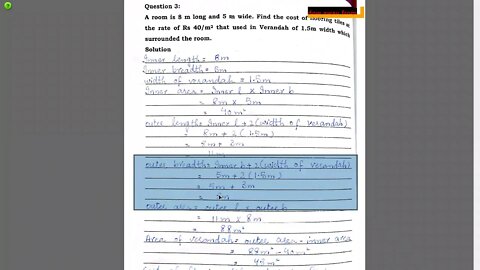 Question 3:
A room is 8 m long and 5 m wide. Find the cost of flooring tiles at
the rate of Rs 40/m² that used in Verandah of 1.5m width which
surrounded the room.
Solution
Inner length = 8m
Inner breadth = 5m
width of verandah = 1.5m
Inner area = Inner l x Inner b
= 8m x 5m
= 40m²
outer length = Inner l + 2(width of verandah)
= 8m + 2(1.5m)
= 8m + 3m
= 11m
outer breadth = Inner b + 2(width of verandah)
= 5m + 2(1.5m)
= 5m + 3m
= 8m
outer area = outer l x outer b
= 11m x 8m
= 88m²
Area of verandah = outer area - inner area
= 88m² - 40m²
= 48m²